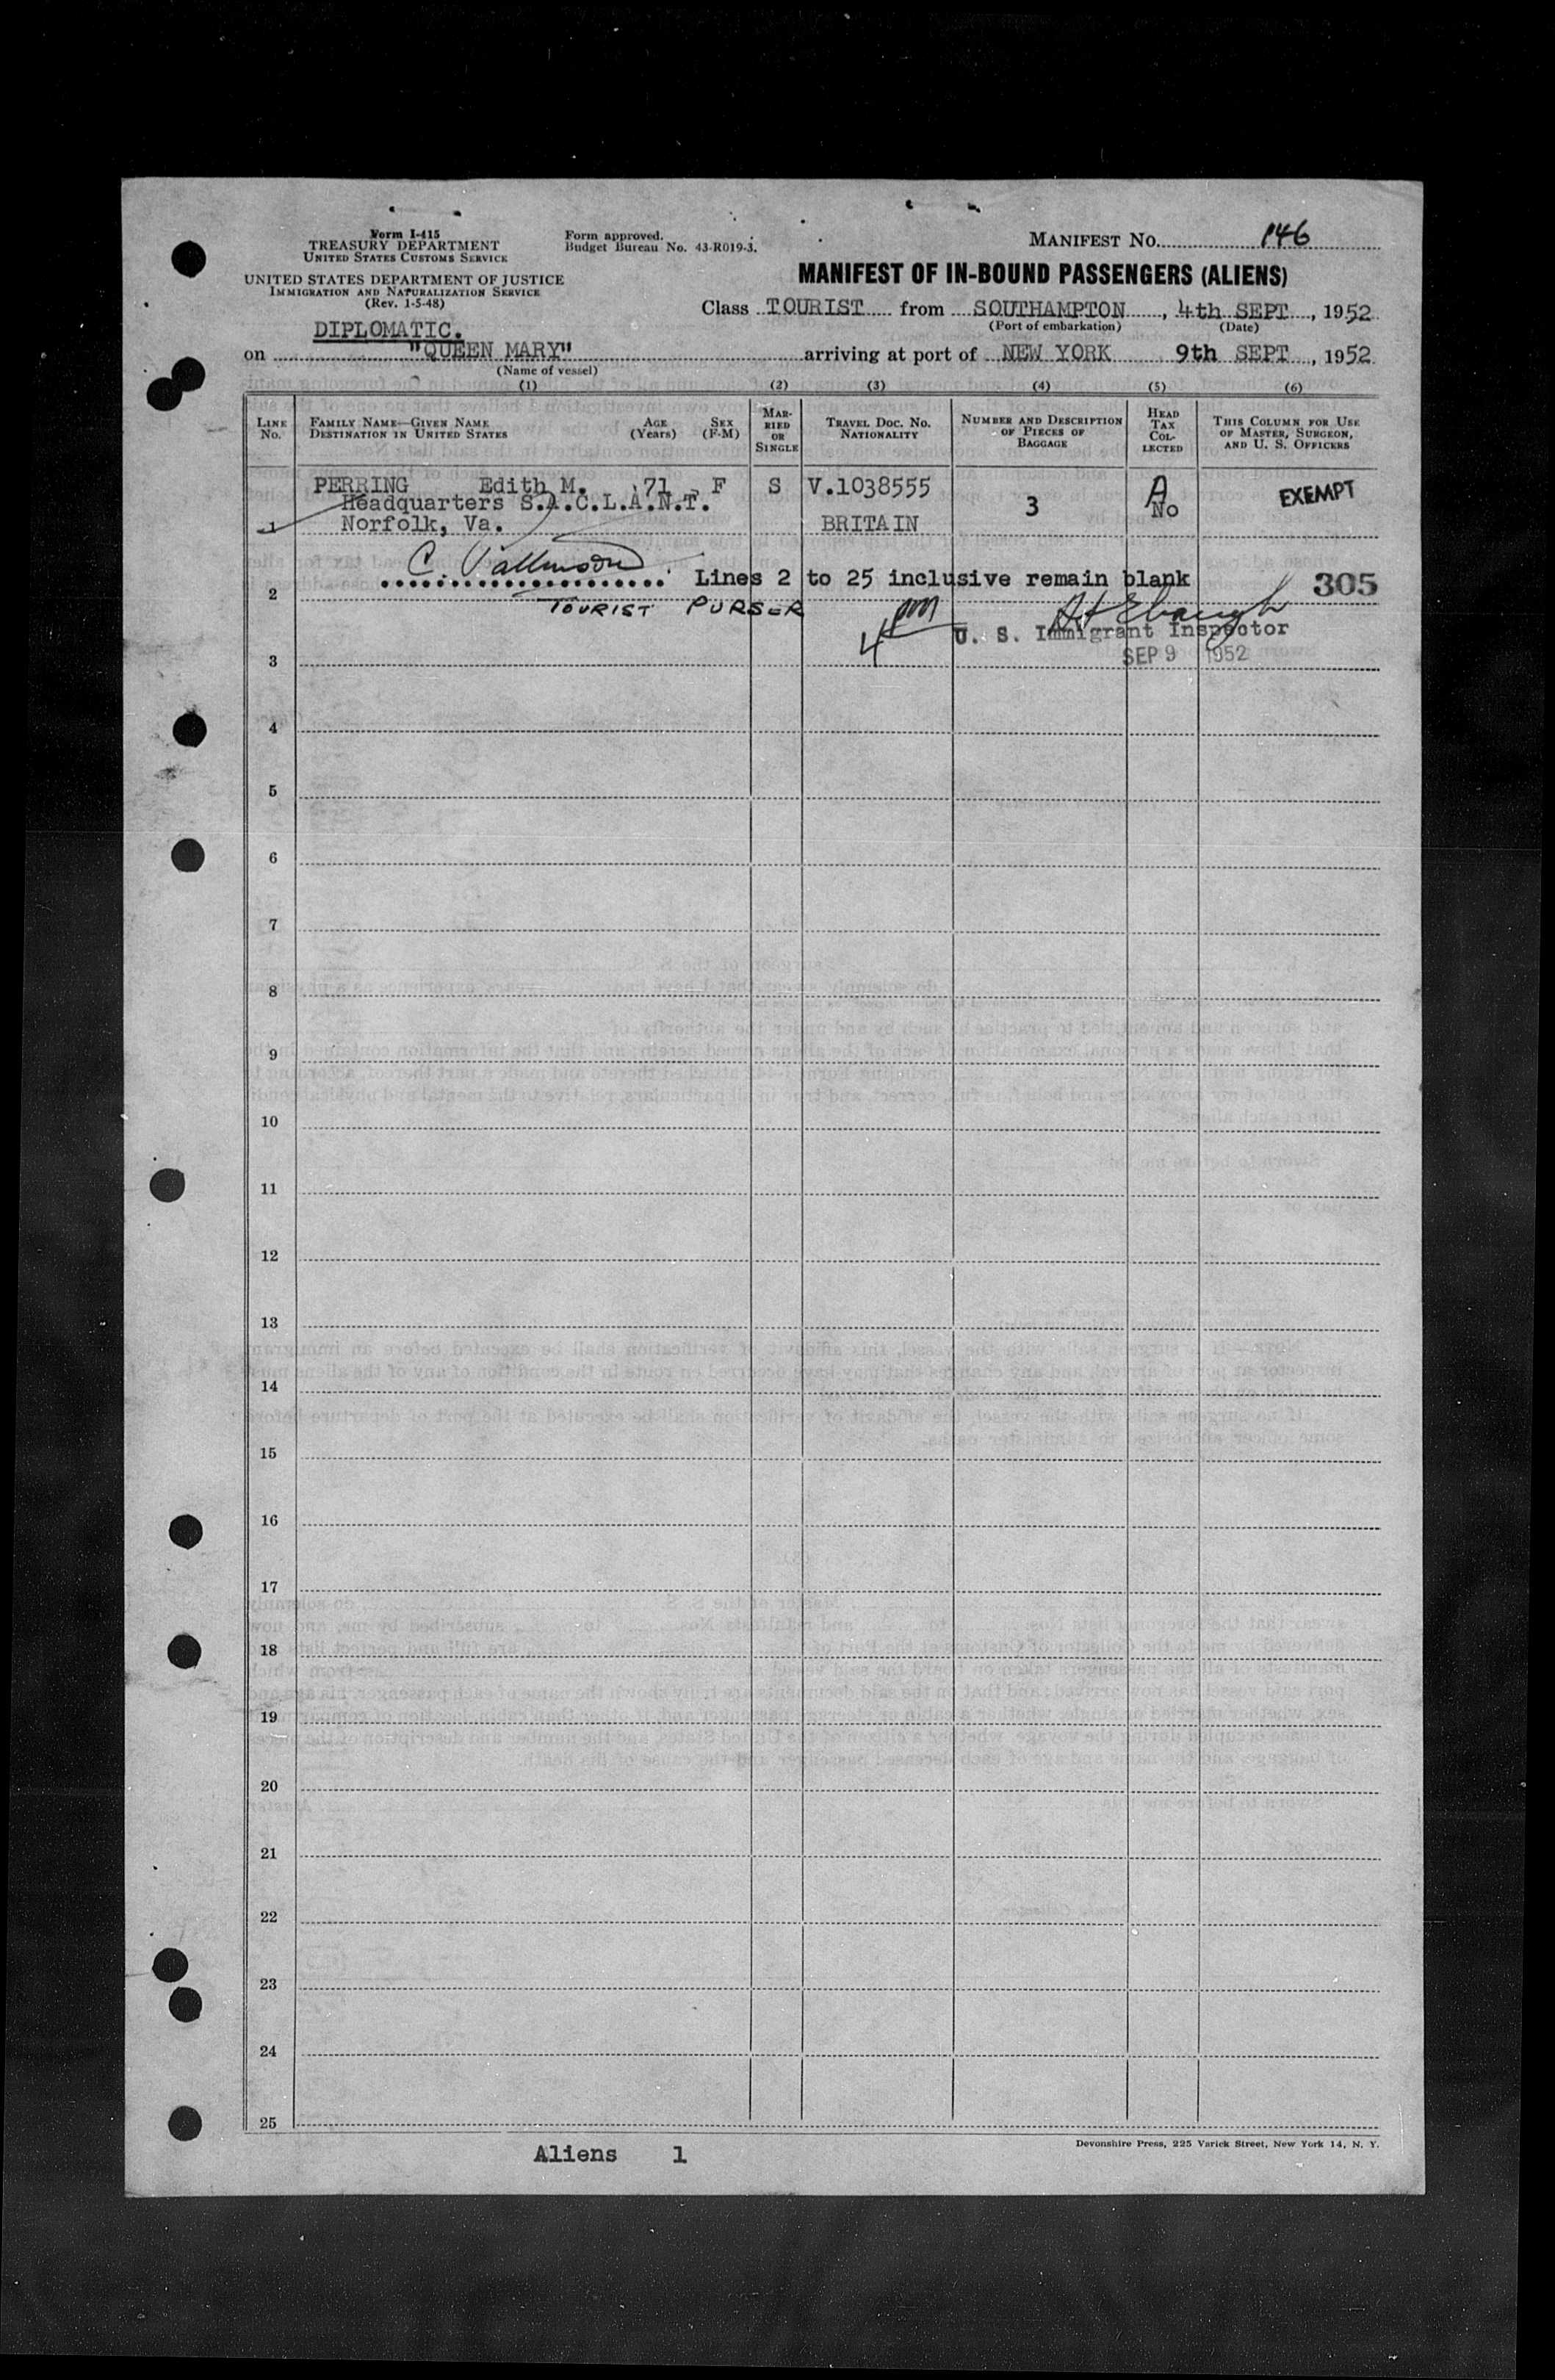 Form I-415
TREASURY DEPARTMENT
UNITED STATES CUSTOMS SERVICE
UNITED STATES DEPARTMENT OF JUSTICE
IMMIGRATION AND NATURALIZATION SERVICE
(Rev. 1-5-48)
Form approved.
Budget Bureau No. 43-R019-3.
MANIFEST NO. 146
MANIFEST OF IN-BOUND PASSENGERS (ALIENS)
Class TOURIST from SOUTHAMPTON, 4th SEPT, 1952
(Port of embarkation) (Date)
DIPLOMATIC.
on "QUEEN MARY" arriving at port of NEW YORK 9th SEPT, 1952
(Name of vessel)
(1) (2) (3) (4) (5) (6)
LINE NO.
FAMILY NAME—GIVEN NAME
DESTINATION IN UNITED STATES
AGE (Years)
SEX (F-M)
MARRIED OR SINGLE
TRAVEL DOC. NO.
NATIONALITY
NUMBER AND DESCRIPTION OF PIECES OF BAGGAGE
HEAD TAX COLLECTED
THIS COLUMN FOR USE OF MASTER, SURGEON, AND U. S. OFFICERS
PERRING Edith M. 71 F S V.1038555
Headquarters S.A.C.L.A.N.T. 3 A No EXEMPT
1 Norfolk, Va. BRITAIN
Lines 2 to 25 inclusive remain blank 305
2
TOURIST PURSER
4 pm
U. S. Immigrant Inspector
SEP 9 1952
3
4
5
6
7
8
9
10
11
12
13
14
15
16
17
18
19
20
21
22
23
24
25
Aliens 1
Devonshire Press, 225 Varick Street, New York 14, N. Y.